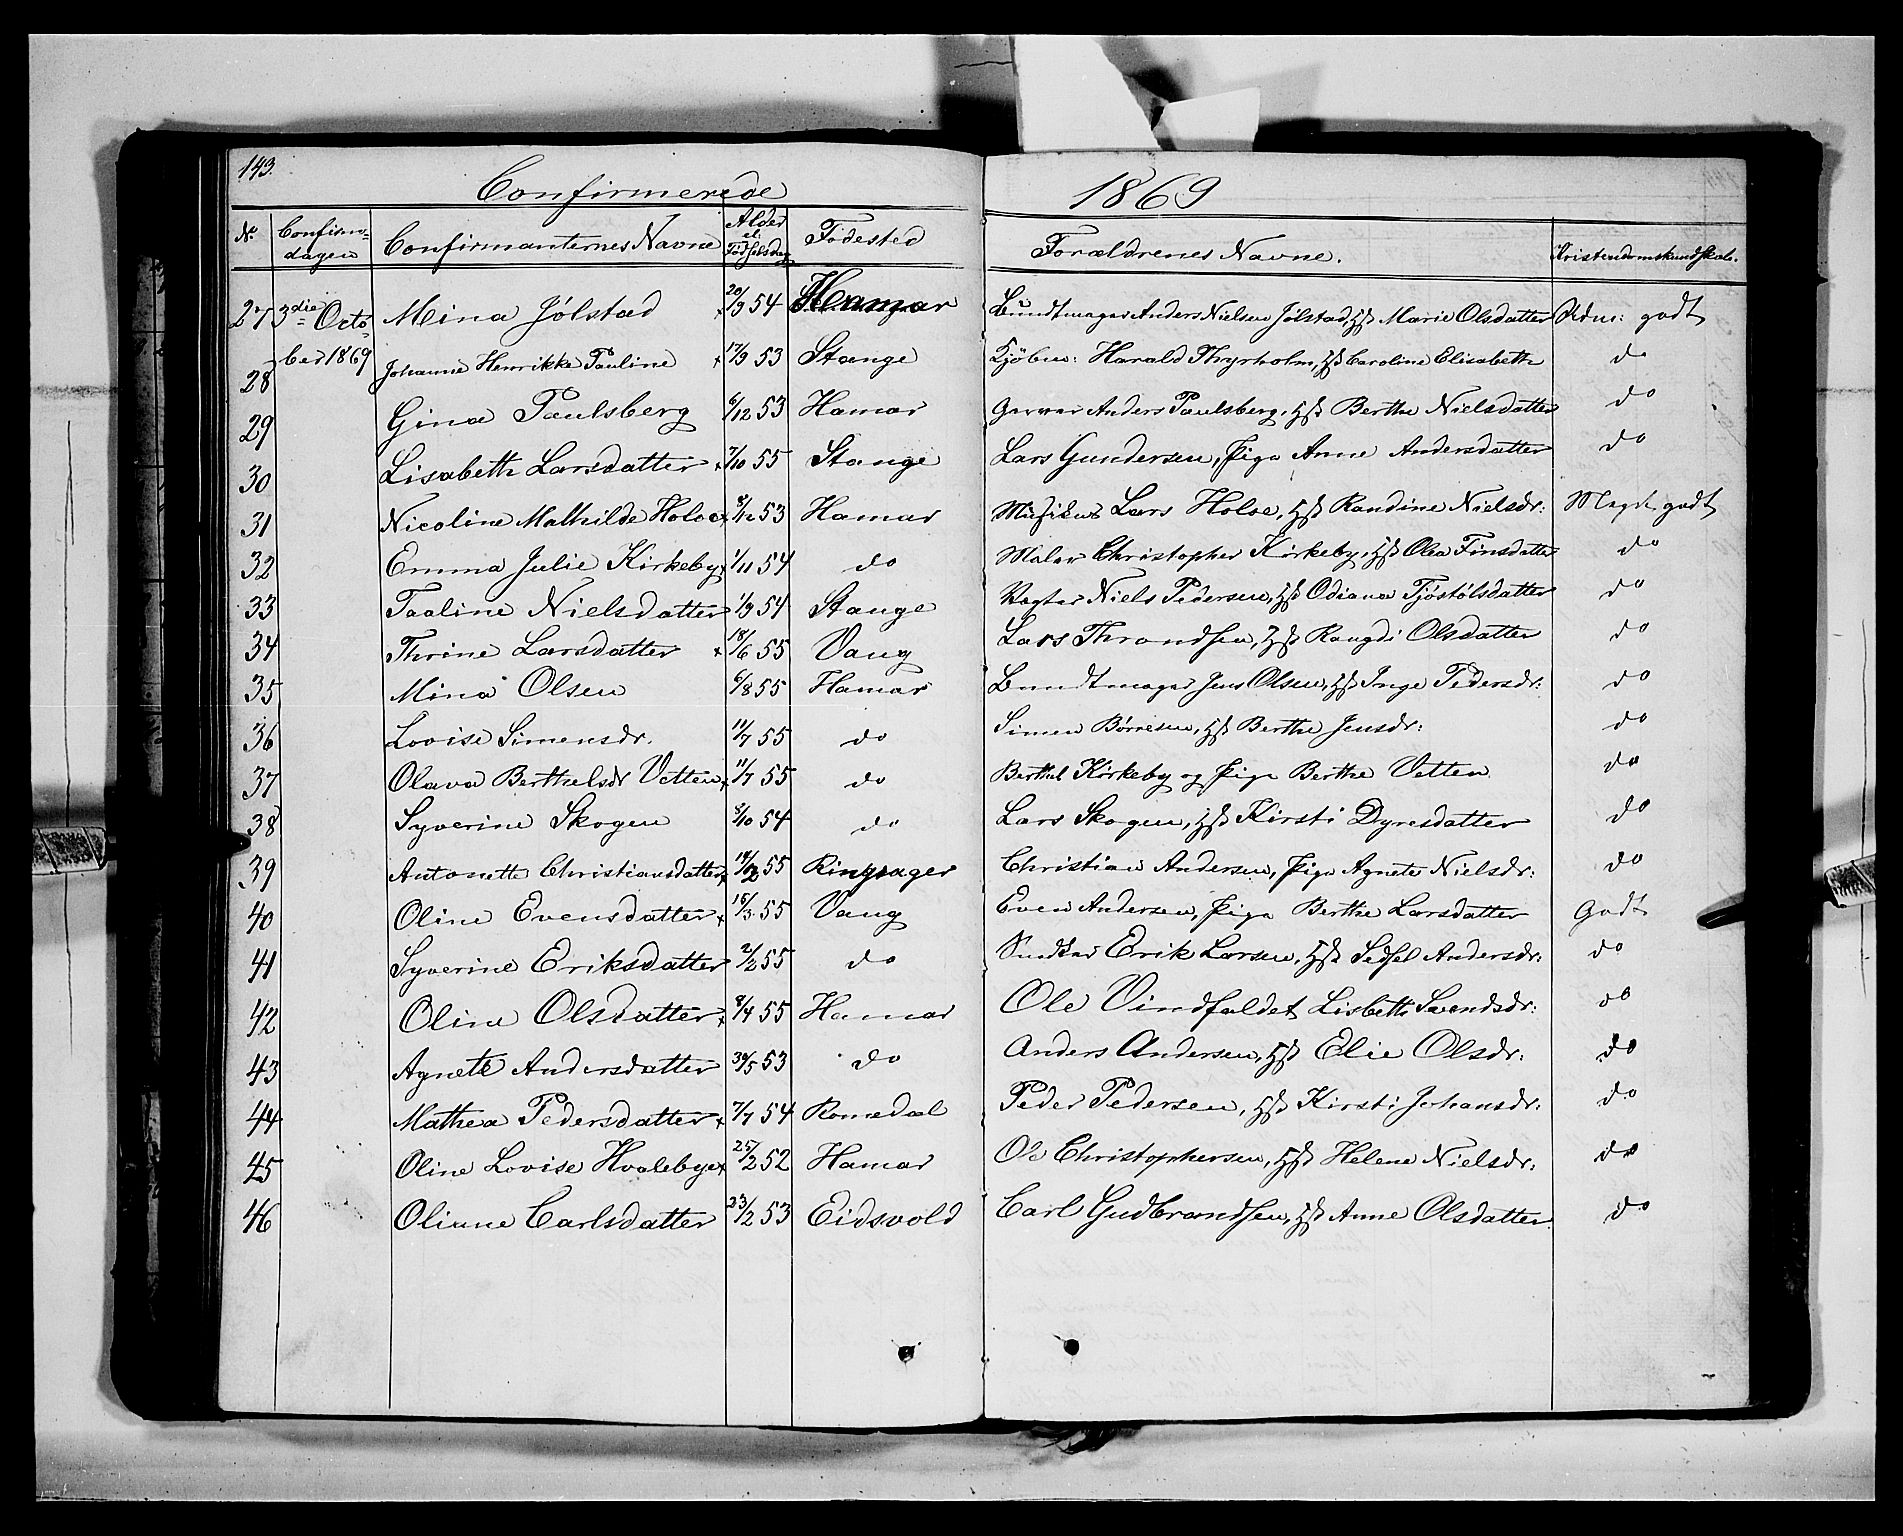 143.
Confirmerede 1869
No. Confirma-dagen Confirmanternes Navne Alder el. Fødselsdag Fødested Forældrenes Navne. Kristendomskundskab.
27 3die Octo Mina Jølstad 20/9 54 Hamar Bundtmager Anders Nielsen Jølstad, Hst Marie Olsdatter godt
ber 1869
28 Johanne Henrikke Pauline 17/9 53 Stange Kjøbm: Harald Thyrholm, Hst Caroline Elisabeth do
29 Gina Paulsberg 6/12 53 Hamar Garver Anders Paulsberg, Hst Berthe Nielsdatter do
30 Lisabeth Larsdatter 7/10 55 Stange Lars Gundersen, Pige Anne Andersdatter do
31 Nicoline Mathilde Holoe 8/12 53 Hamar Musikus Lars Holoe, Hst Randine Nielsdr: Meget godt
32 Emma Julie Kirkeby 1/11 54 do Maler Christopher Kirkeby, Hst Olea Finsdatter do
33 Paaline Nielsdatter 1/9 54 Stange Vogter Niels Pedersen, Hst Odiana Tjøstølsdatter do
34 Thrine Larsdatter 18/6 55 Vang Lars Thrandsen, Hst Rangdi Olsdatter do
35 Mina Olsen 6/8 55 Hamar Bundtmager Jens Olsen, Hst Inge Pedersdr: do
36 Lovise Simensdr. 11/7 55 do Simen Børresen, Hst Berthe Jensdr: do
37 Olava Berthelsdr Vetten 11/7 55 do Berthel Kirkeby og Pige Berthe Vetten do
38 Syverine Skogen 8/10 54 do Lars Skogen, Hst Kirsti Dyresdatter do
39 Antonette Christiansdatter 14/2 55 Ringsager Christian Andersen, Pige Agnete Nielsdr: do
40 Oline Evensdatter 15/3 55 Vang Even Andersen, Pige Berthe Larsdatter Godt
41 Syverine Eriksdatter 2/2 55 do Snedker Erik Larsen, Hst Sidsel Andersdr: do
42 Oline Olsdatter 8/4 55 Hamar Ole Vindfaldet Lisbeth Svendsdr: do
43 Agnete Andersdatter 30/5 53 do Anders Andersen, Hst Elie Olsdr: do
44 Mathea Pedersdatter 7/7 54 Romedal Peder Pedersen, Hst Kirsti Johansdr: do
45 Oline Lovise Hvalebye 25/2 52 Hamar Ole Christophersen, Hst Helene Nielsdr: do
46 Oliane Carlsdatter 23/2 53 Eidsvold Carl Gudbrandsen, Hst Anne Olsdatter do